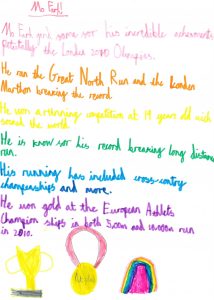 Mo Farah
Mo Farah is known for his incredible achievements
potentially the London 2020 Olympics.
He ran the Great North Run and the London
Marthon breaking the record.
He won a running competition at 19 years old which
the world.
He is know for his record breaking long distance
run.
His running has included cross-contry
champeonships and more.
He won gold at the European Athlets
Champion ships in both 5,000m and 10,000m run
in 2010.